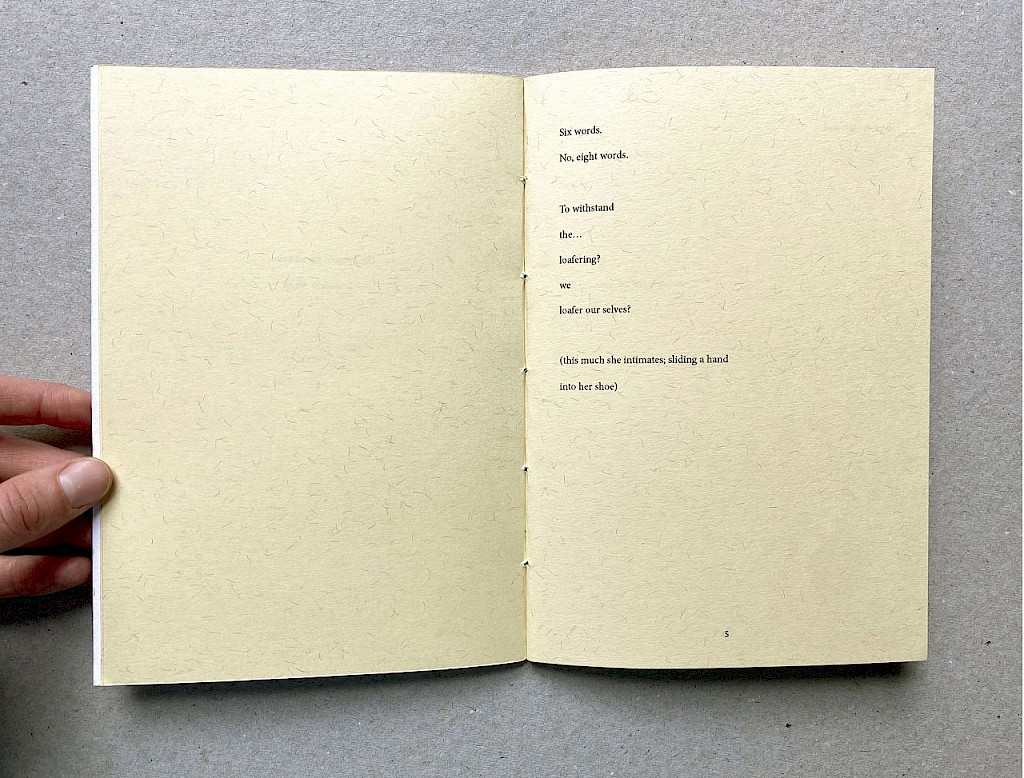 Six words.
No, eight words.
To withstand
the…
loafering?
we
loafer our selves?
(this much she intimates; sliding a hand
into her shoe)
5